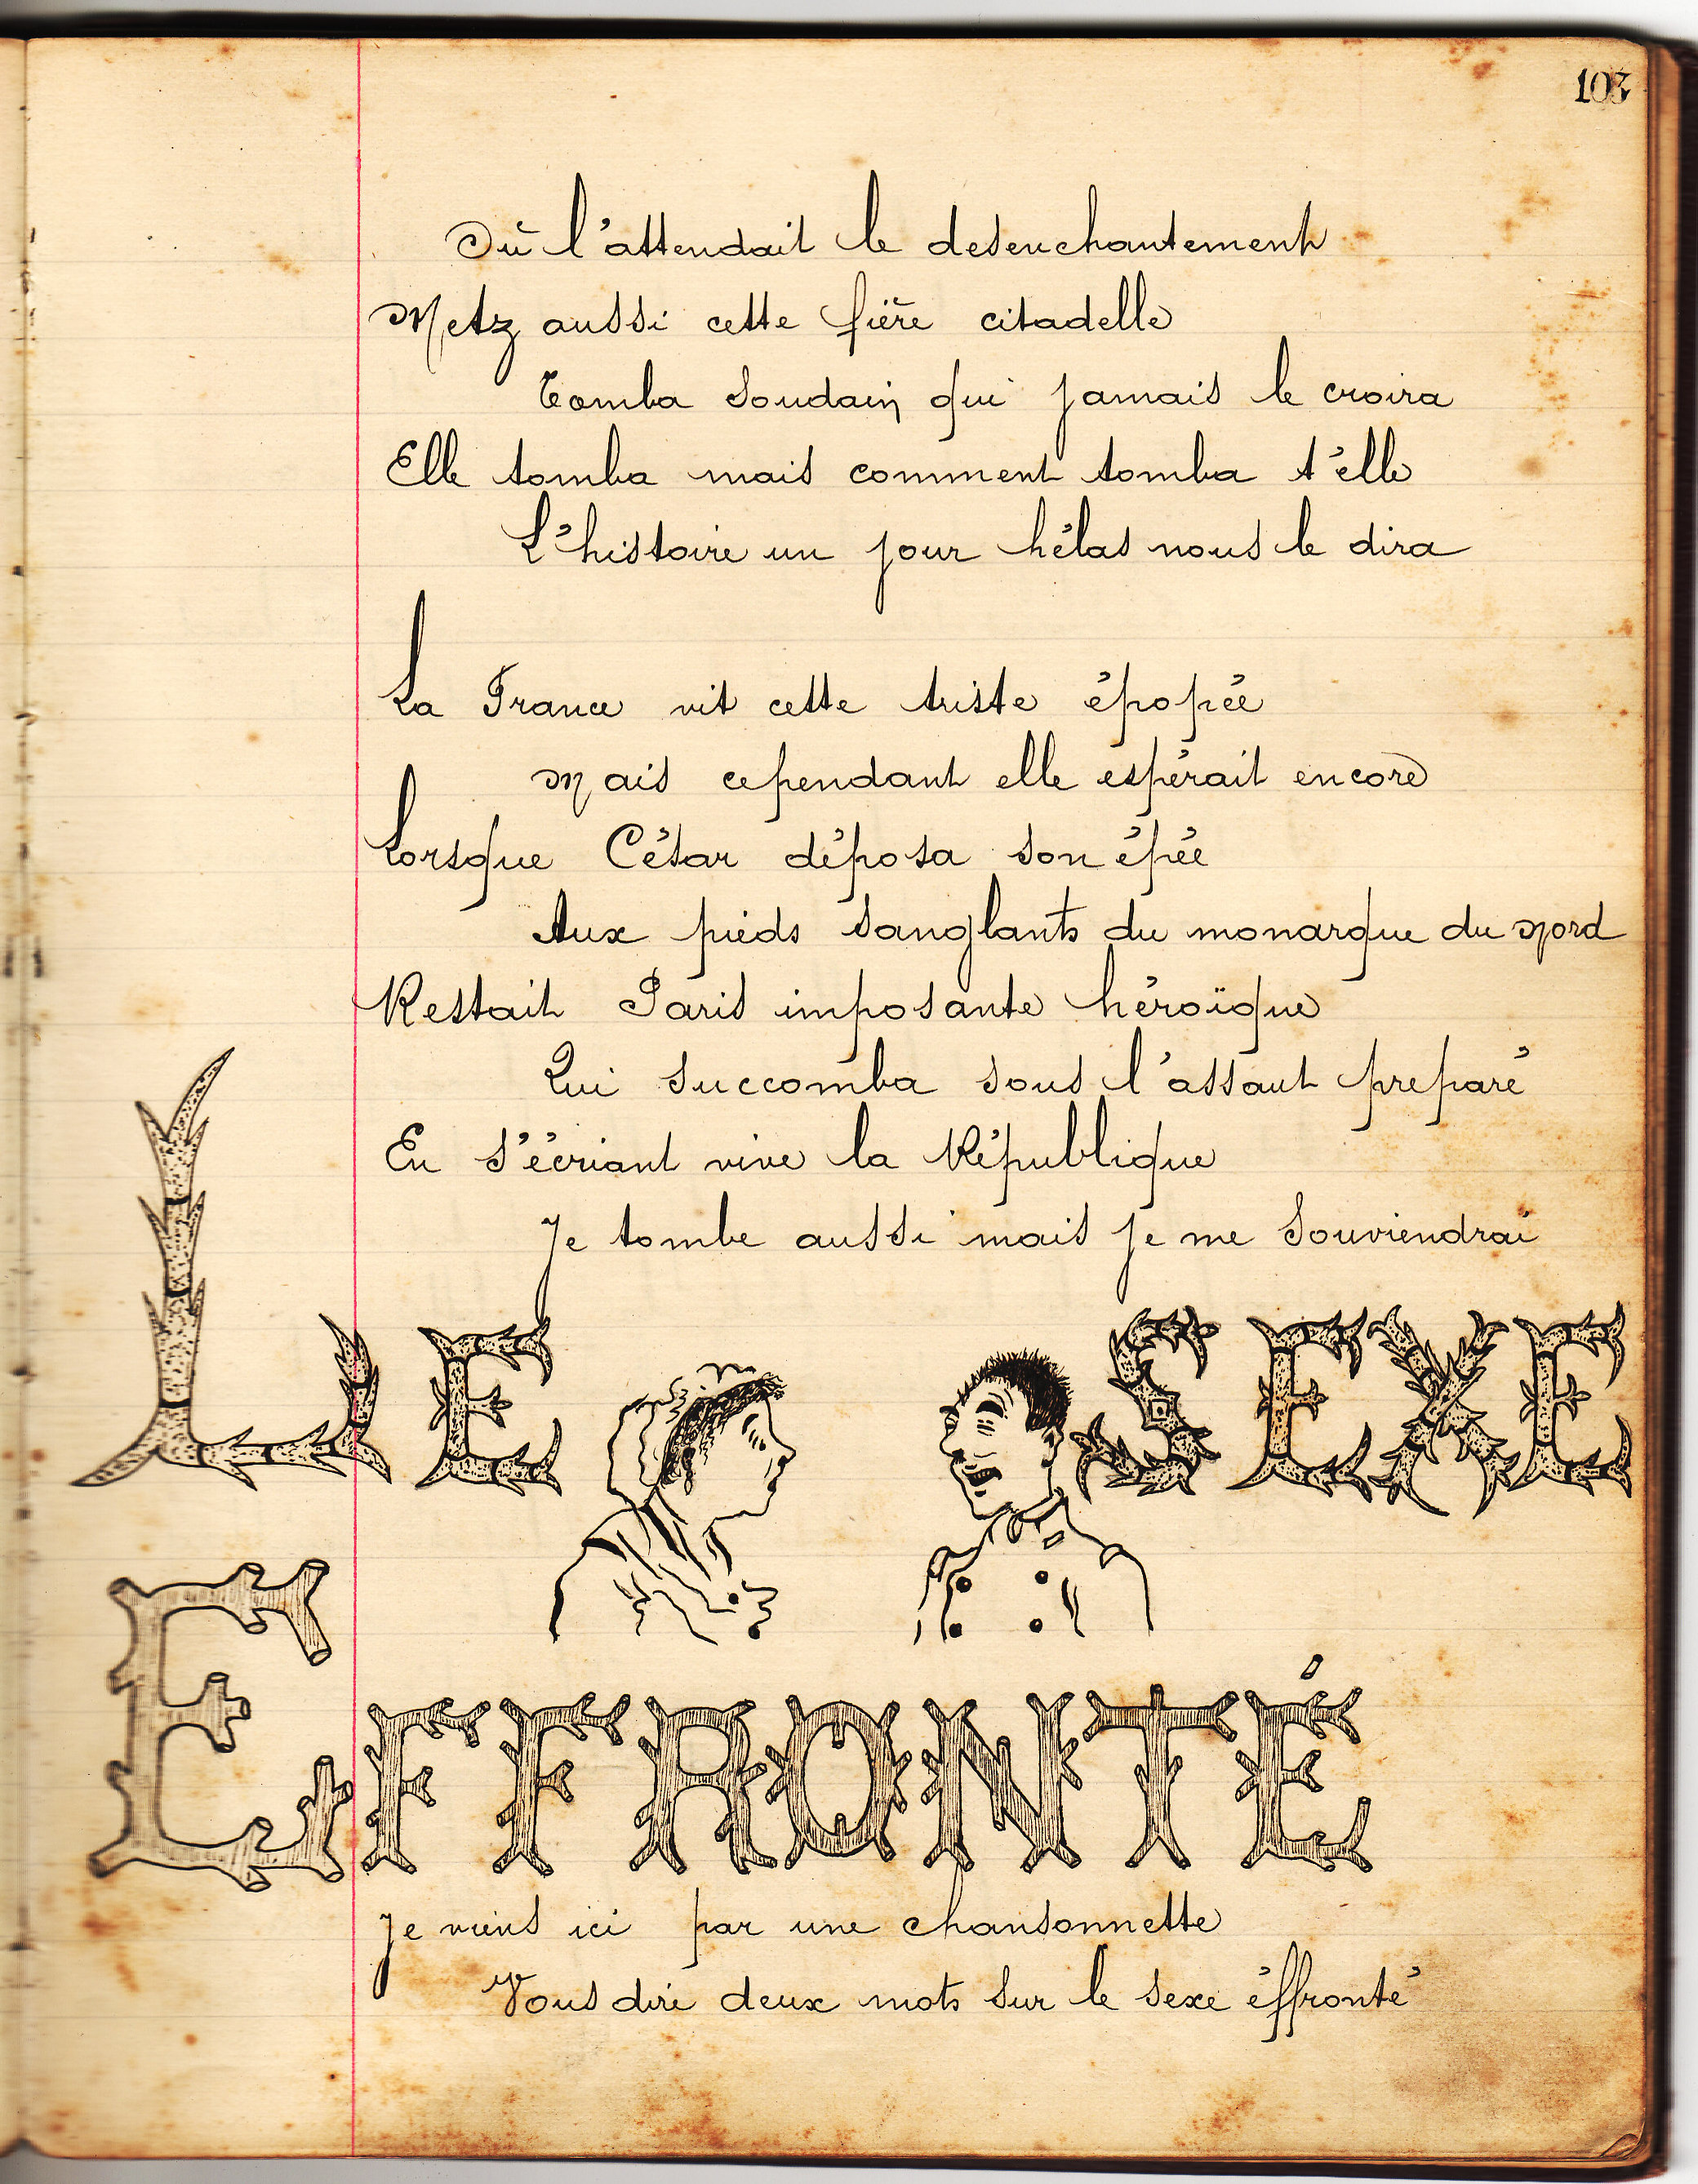 103
Où l'attendait le desenchantement
Metz aussi cette fière citadelle
Tomba soudain qui jamais le croira
Elle tomba mais comment tomba t'elle
L'histoire un jour hélas nous le dira
La France vit cette triste épopée
Mais cependant elle espérait encore
Lorsque César déposa son épée
Aux pieds sanglants du monarque du Nord
Restait Paris imposante héroïque
Qui succomba sous l'assaut preparé
En s'écriant vive la République
Je tombe aussi mais je me souviendrai
LE SEXE
EFFRONTÉ
Je viens ici par une chansonnette
Vous dire deux mots sur le sexe éffronté